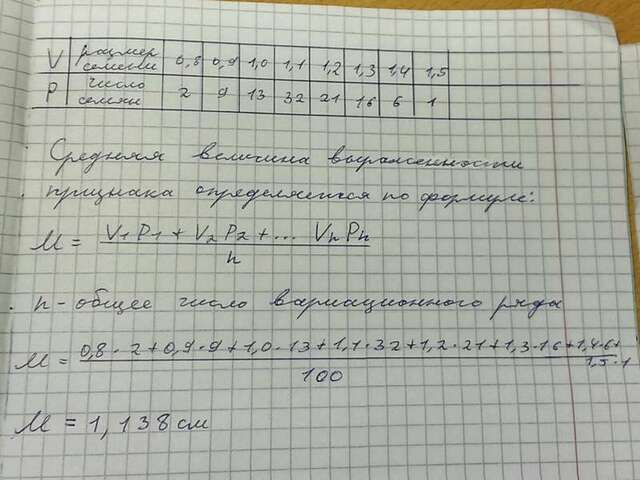 V размер семени 0,8 0,9 1,0 1,1 1,2 1,3 1,4 1,5
P число семени 2 9 13 32 21 16 6 1
Средняя величина выраженности
признака определяется по формуле:
M = (V1P1 + V2P2 + ... VnPn) / n
n - общее число вариационного ряда
M = (0,8·2+0,9·9+1,0·13+1,1·32+1,2·21+1,3·16+1,4·6+1,5·1) / 100
M = 1,138 см